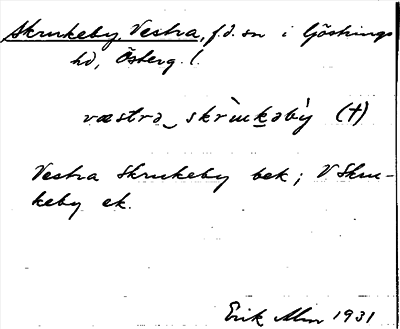 Skrukeby, Vestra, f.d. sn i Göstrings
hd, Österg. l.
væstra ‿ skrùkəbý (†)
Vestra Skrukeby bek; V Skru-
keby ek.
Erik Alm 1931